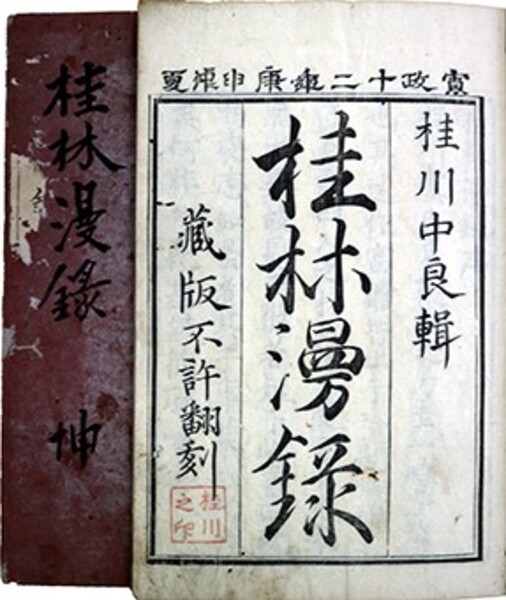 寛政十二年庚申夏
桂川中良輯
桂林漫録
藏版不許翻刻
桂川之印
桂林漫録 坤